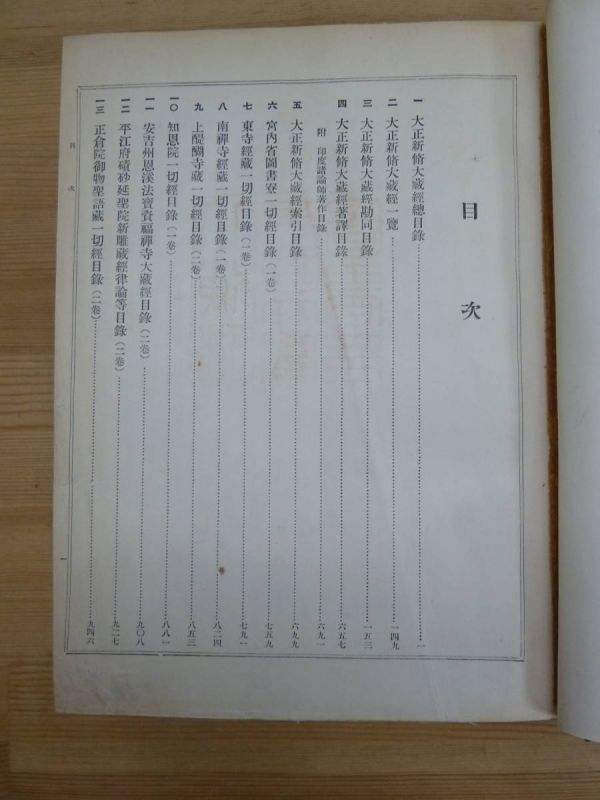 目次
一 大正新脩大藏經總目錄 一
二 大正新脩大藏經一覽 一四九
三 大正新脩大藏經勘同目錄 一五三
四 大正新脩大藏經著譯目錄 六五七
附 印度諸論師著作目錄 六九一
五 大正新脩大藏經索引目錄 六九九
六 宮內省圖書寮一切經目錄(一卷) 七五九
七 東寺經藏一切經目錄(二卷) 七九一
八 南禪寺經藏一切經目錄(一卷) 八二四
九 上醍醐寺藏一切經目錄(二卷) 八五三
一〇 知恩院一切經目錄(一卷) 八八一
一一 安吉州思溪法寶資福禪寺大藏經目錄(二卷) 九〇八
一二 平江府磧砂延聖院新雕藏經律論等目錄(二卷) 九二七
一三 正倉院御物聖語藏一切經目錄(二卷) 九四六
目次
一